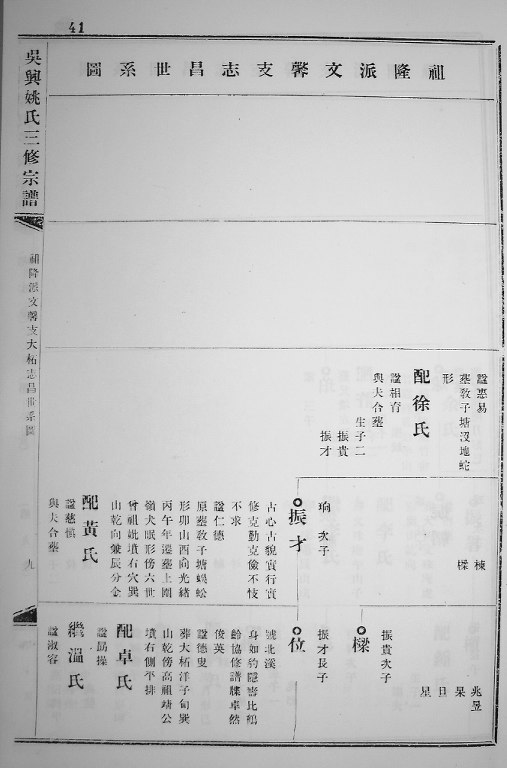 41
祖隆派文馨支志昌世系圖
吳興姚氏三修宗譜
祖隆派文馨支大柘志昌世系圖
九
諡惠易
墓敎子塘沒地蛇
形
配徐氏
諡祖育
與夫合墓
生子二
振貴
振才
棟
樑
珦 次子
振才
古心古貌實行實
修克勤克儉不忮
不求
諡仁德
原墓敎子塘蜈蚣
形卯山酉向光緖
丙午年遷墓上圍
嶺犬眠形傍六世
曾祖妣墳右穴巽
山乾向兼辰分金
配黃氏
諡慈慎
與夫合墓
兆昱
杲
旦
星
振貴次子
樑
振才長子
位
號北溪
身如豹隱壽比鶴
齡協修譜牒卓然
俊英
諡德叟
葬大柘洋子甸巽
山乾傍高祖靖公
墳右側平排
配卓氏
諡勗操
繼溫氏
諡淑容